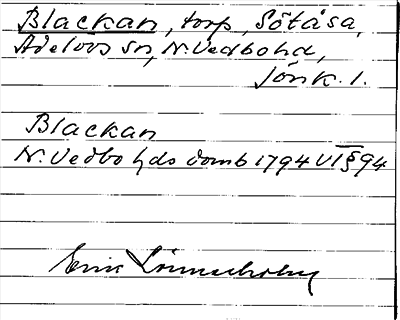 Blackan, torp, Sötåsa,
Adelövs sn, N. Vedbohd,
Jönk. l.
Blackan
N. Vedbo hds domb 1794 VI § 94
Erik